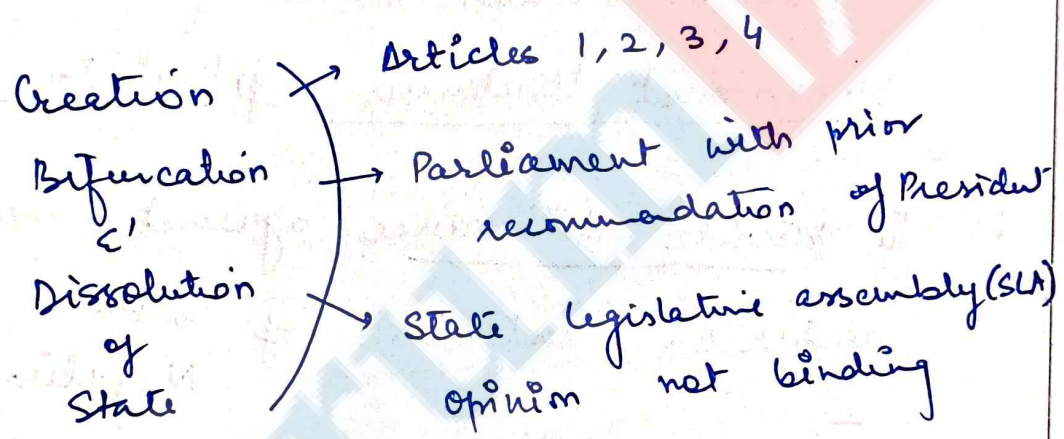 Creation
Bifurcation
&
Dissolution
of
State
Articles 1, 2, 3, 4
Parliament with prior
recommadation of President
State legislative assembly (SLA)
opinion not binding